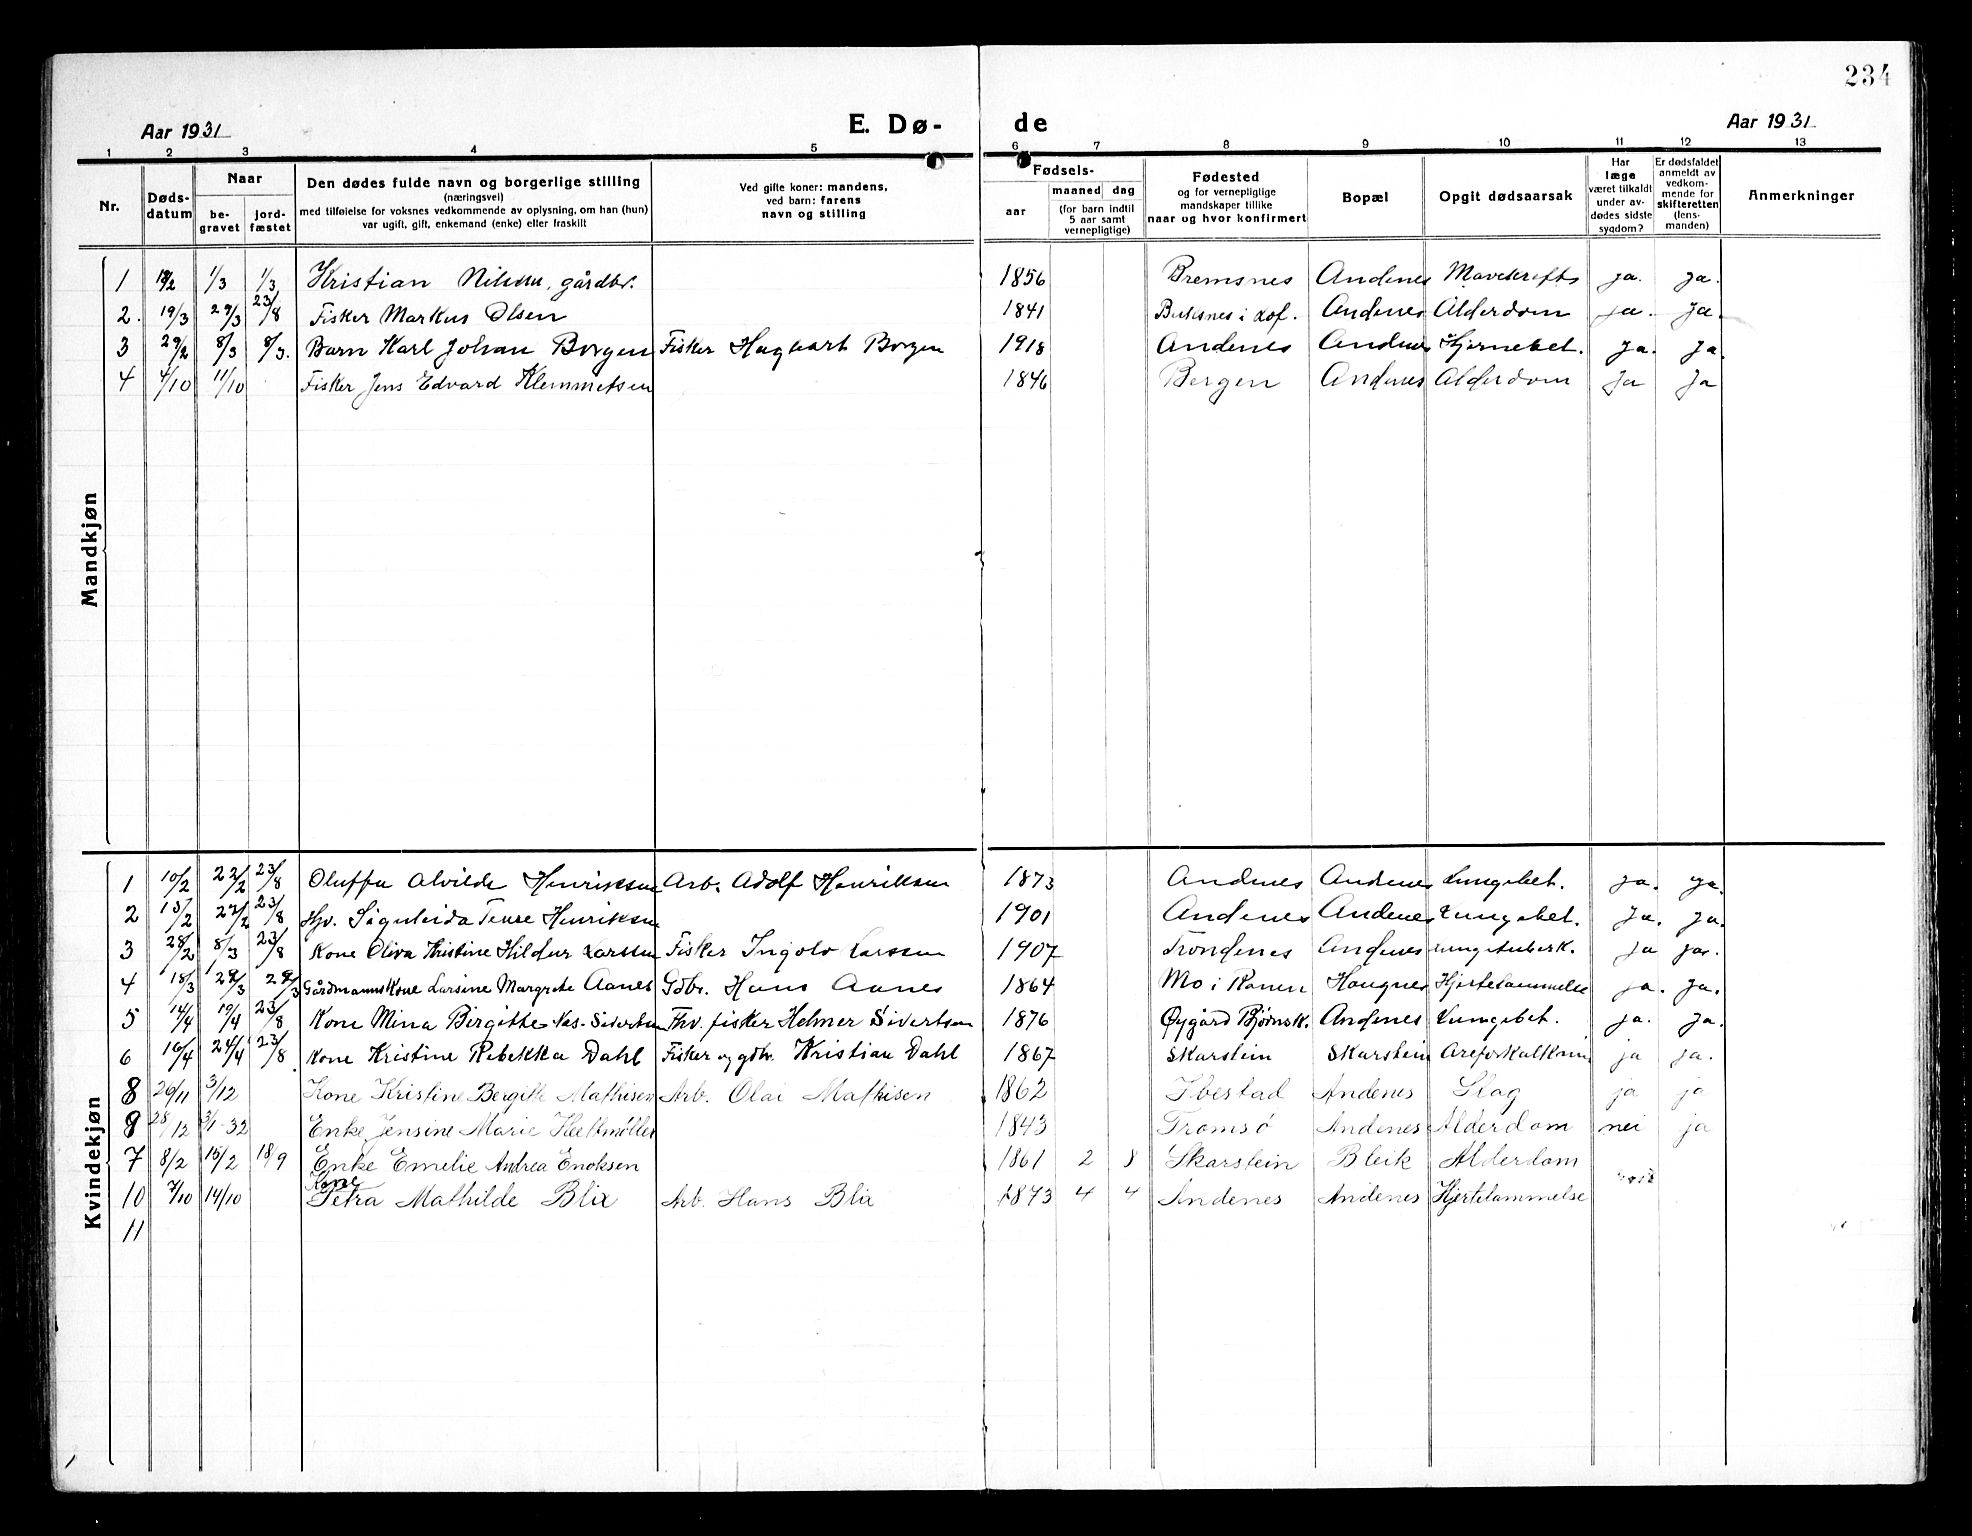 234
Aar 1931
E. Dø-
de
Aar 1931
1 2 3 4 5 6 7 8 9 10 11 12 13
Nr.
Døds-
datum
Naar
be-
gravet
jord-
fæstet
Den dødes fulde navn og borgerlige stilling
(næringsvei)
med tilføielse for voksnes vedkommende av oplysning, om han (hun)
var ugift, gift, enkemand (enke) eller fraskilt
Ved gifte koner: mandens,
ved barn: farens
navn og stilling
Fødsels-
aar
maaned dag
(for barn indtil
5 aar samt
vernepligtige)
Fødested
og for vernepligtige
mandskaper tillike
naar og hvor konfirmert
Bopæl
Opgit dødsaarsak
Har
læge
været tilkaldt
under av-
dødes sidste
sygdom?
Er dødsfaldet
anmeldt av
vedkom-
mende for
skifteretten
(lens-
manden)
Anmerkninger
Mandkjøn
1 1/3 1/3 Kristian Nilsen, gårdbr. 1856 Bremsnes Andenes Mavekreft ja. ja.
2. 19/3 29/3 23/8 Fisker Markus Olsen 1841 Buksnes i Lof. Andenes Alderdom ja. Ja.
3 29/2 8/3 8/3. Barn Karl Johan Borgen Fisker Hagbart Borgen 1918 Andenes Andenes Hjernebet. Ja. Ja.
4 4/10 11/10 Fisker Jens Edvard Klemmetsen 1846 Bergen Andenes Alderdom Ja Ja
Kvindekjøn
1 10/2 22/2 23/8 Oluffa Alvilde Henriksen Arb. Adolf Henriksen 1873 Andenes Andenes Lungebet. ja. ja.
2 13/2 22/2 23/8 Hjv. Henriksen 1901 Andenes Andenes Lungebet. Ja. Ja.
3 28/2 8/3 23/8 Kone Oliva Kristine Hildur Larssen Fisker Ingolv Larssen 1907 Trondenes Andenes Lungetuberk. Ja Ja.
4 18/3 29/3 29/3 Gårdmannskone Larsine Margrete Aanes Gdbr. Hans Aanes 1864 Mo i Ranen Haugnes Hjertelammelse ja. Ja.
5 14/4 19/4 23/8 Kone Mina Bergitte Nes-Sivertsen Fhv. fisker Helmer Sivertsen 1876 Øygård Bjørnsk. Andenes Lungebet. ja. Ja.
6 16/4 24/4 23/8 Kone Kristine Rebekka Dahl Fisker og gdbr. Kristian Dahl 1867 Skarstein Skarstein Areforkalkning ja ja.
8 26/11 3/12 Kone Kristin Bergitte Mathisen Arb. Olai Mathisen 1862 Ibestad Andenes Slag ja ja
9 28/12 3/1-32 Enke Jensine Marie 1843 Tromsø Andenes Alderdom nei ja
7 8/2 15/2 18/9 Enke Emelie Andrea Enoksen 1861 2 8 Skarstein Bleik Alderdom
10 7/10 14/10 Kone Petra Mathilde Blix Arb. Hans Blix 1873 4 4 Andenes Andenes Hjertelammelse
11